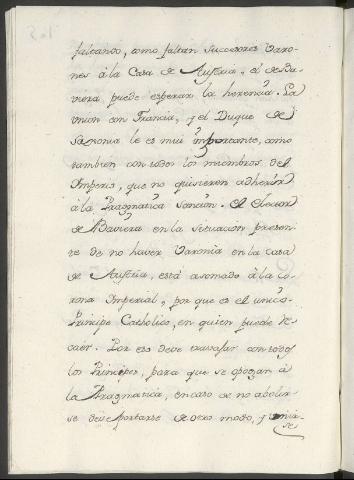 faltando, como faltan succesores Varo-
nes à la Casa de Austria, el de Ba-
viera, puede esperar la herencia. La
union con Francia, y el Duque de
Saxonia le es mui importante, como
tambien con todos los miembros del
Imperio, que no quisieren adherir
à la Pragmatica sancion. El Elector
de Baviera en la situacion presen-
te de no haver Varonia en la casa
de Austria, està asomado à la Co-
rona Imperial, por que es el unico
Principe Catholico, en quien puede re-
caer. Por eso deve travajar con todos
los Principes, para que se opongan à
la Pragmatica, en caso de no abolir-
se deve portarse de otro modo, y unir-
se